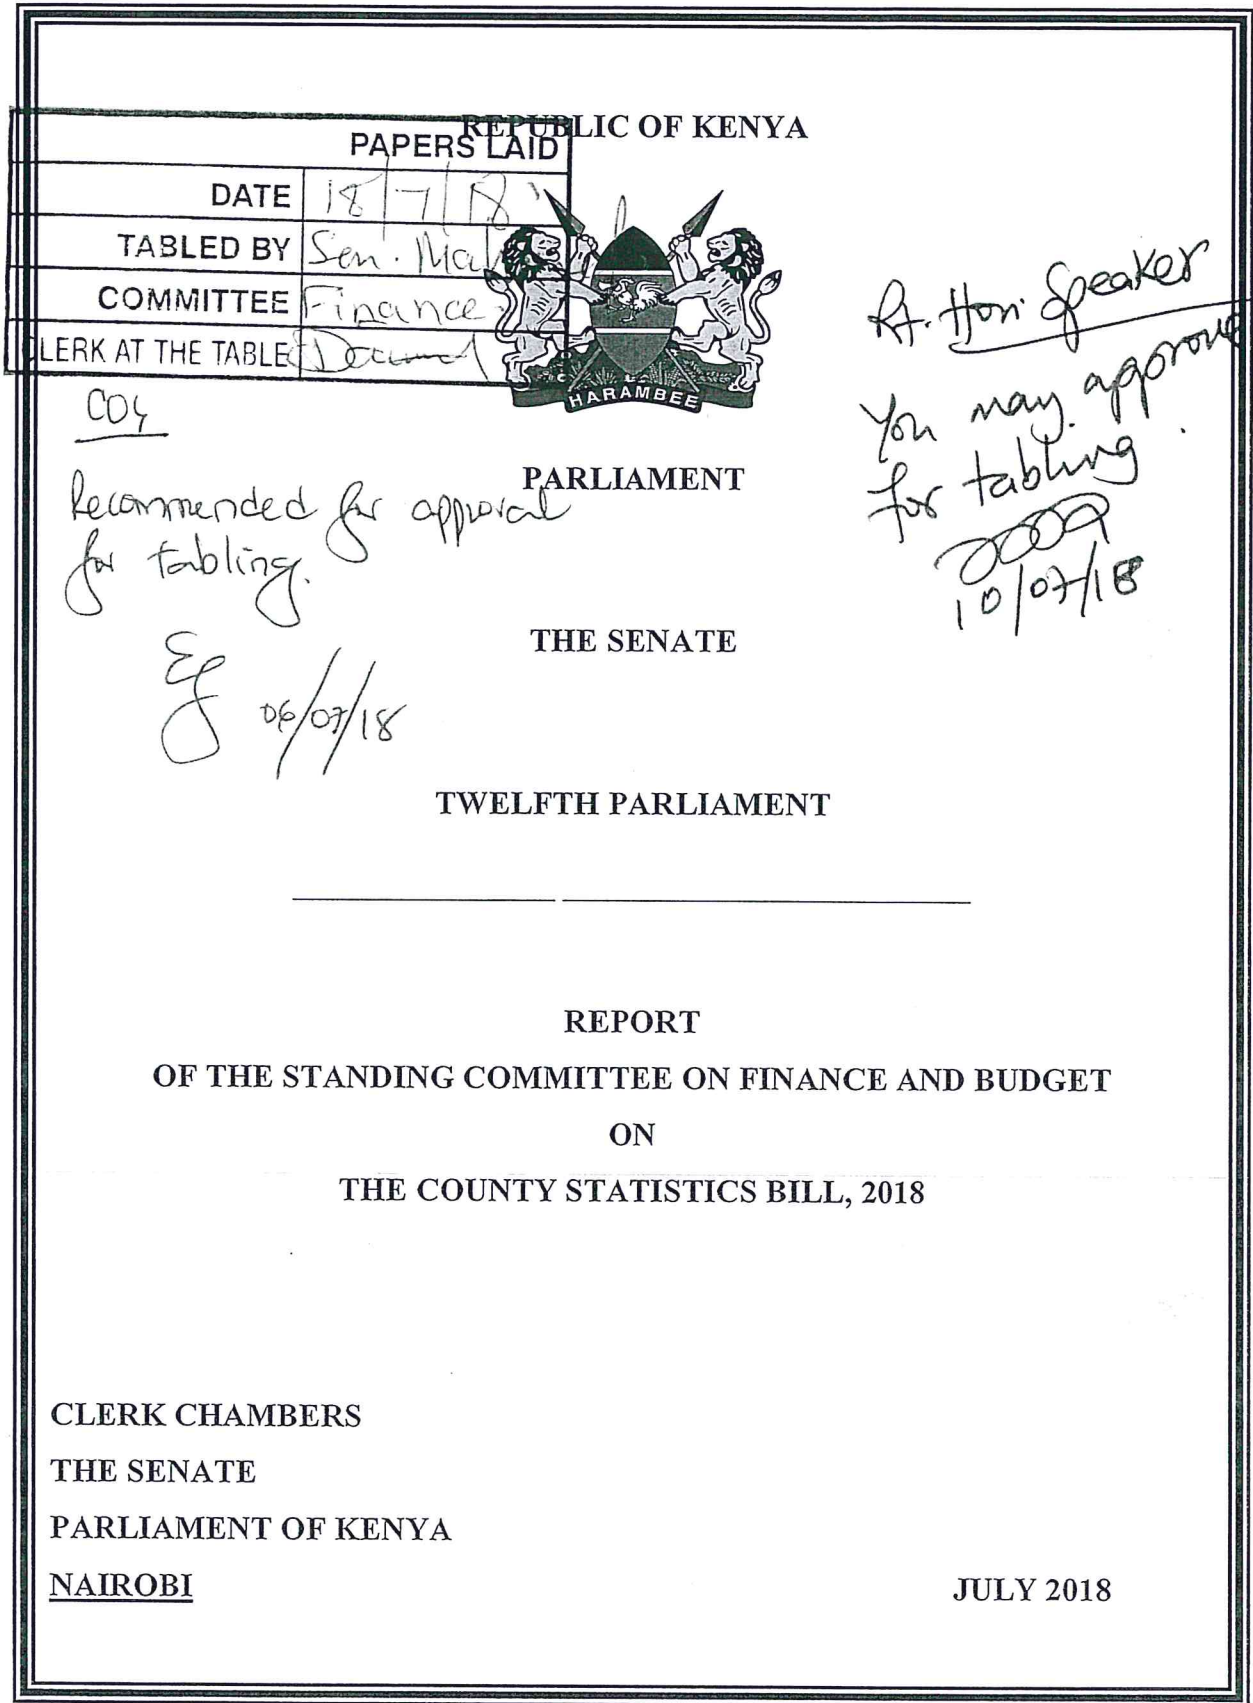 REPUBLIC OF KENYA
PAPERS LAID
DATE 18/7/18
TABLED BY Sen.
COMMITTEE Finance
CLERK AT THE TABLE
HARAMBEE
Rt. Hon Speaker
You may approve
for tabling.
10/07/18
Recommended for approval
for tabling.
06/07/18
PARLIAMENT
THE SENATE
TWELFTH PARLIAMENT
REPORT
OF THE STANDING COMMITTEE ON FINANCE AND BUDGET
ON
THE COUNTY STATISTICS BILL, 2018
CLERK CHAMBERS
THE SENATE
PARLIAMENT OF KENYA
NAIROBI
JULY 2018